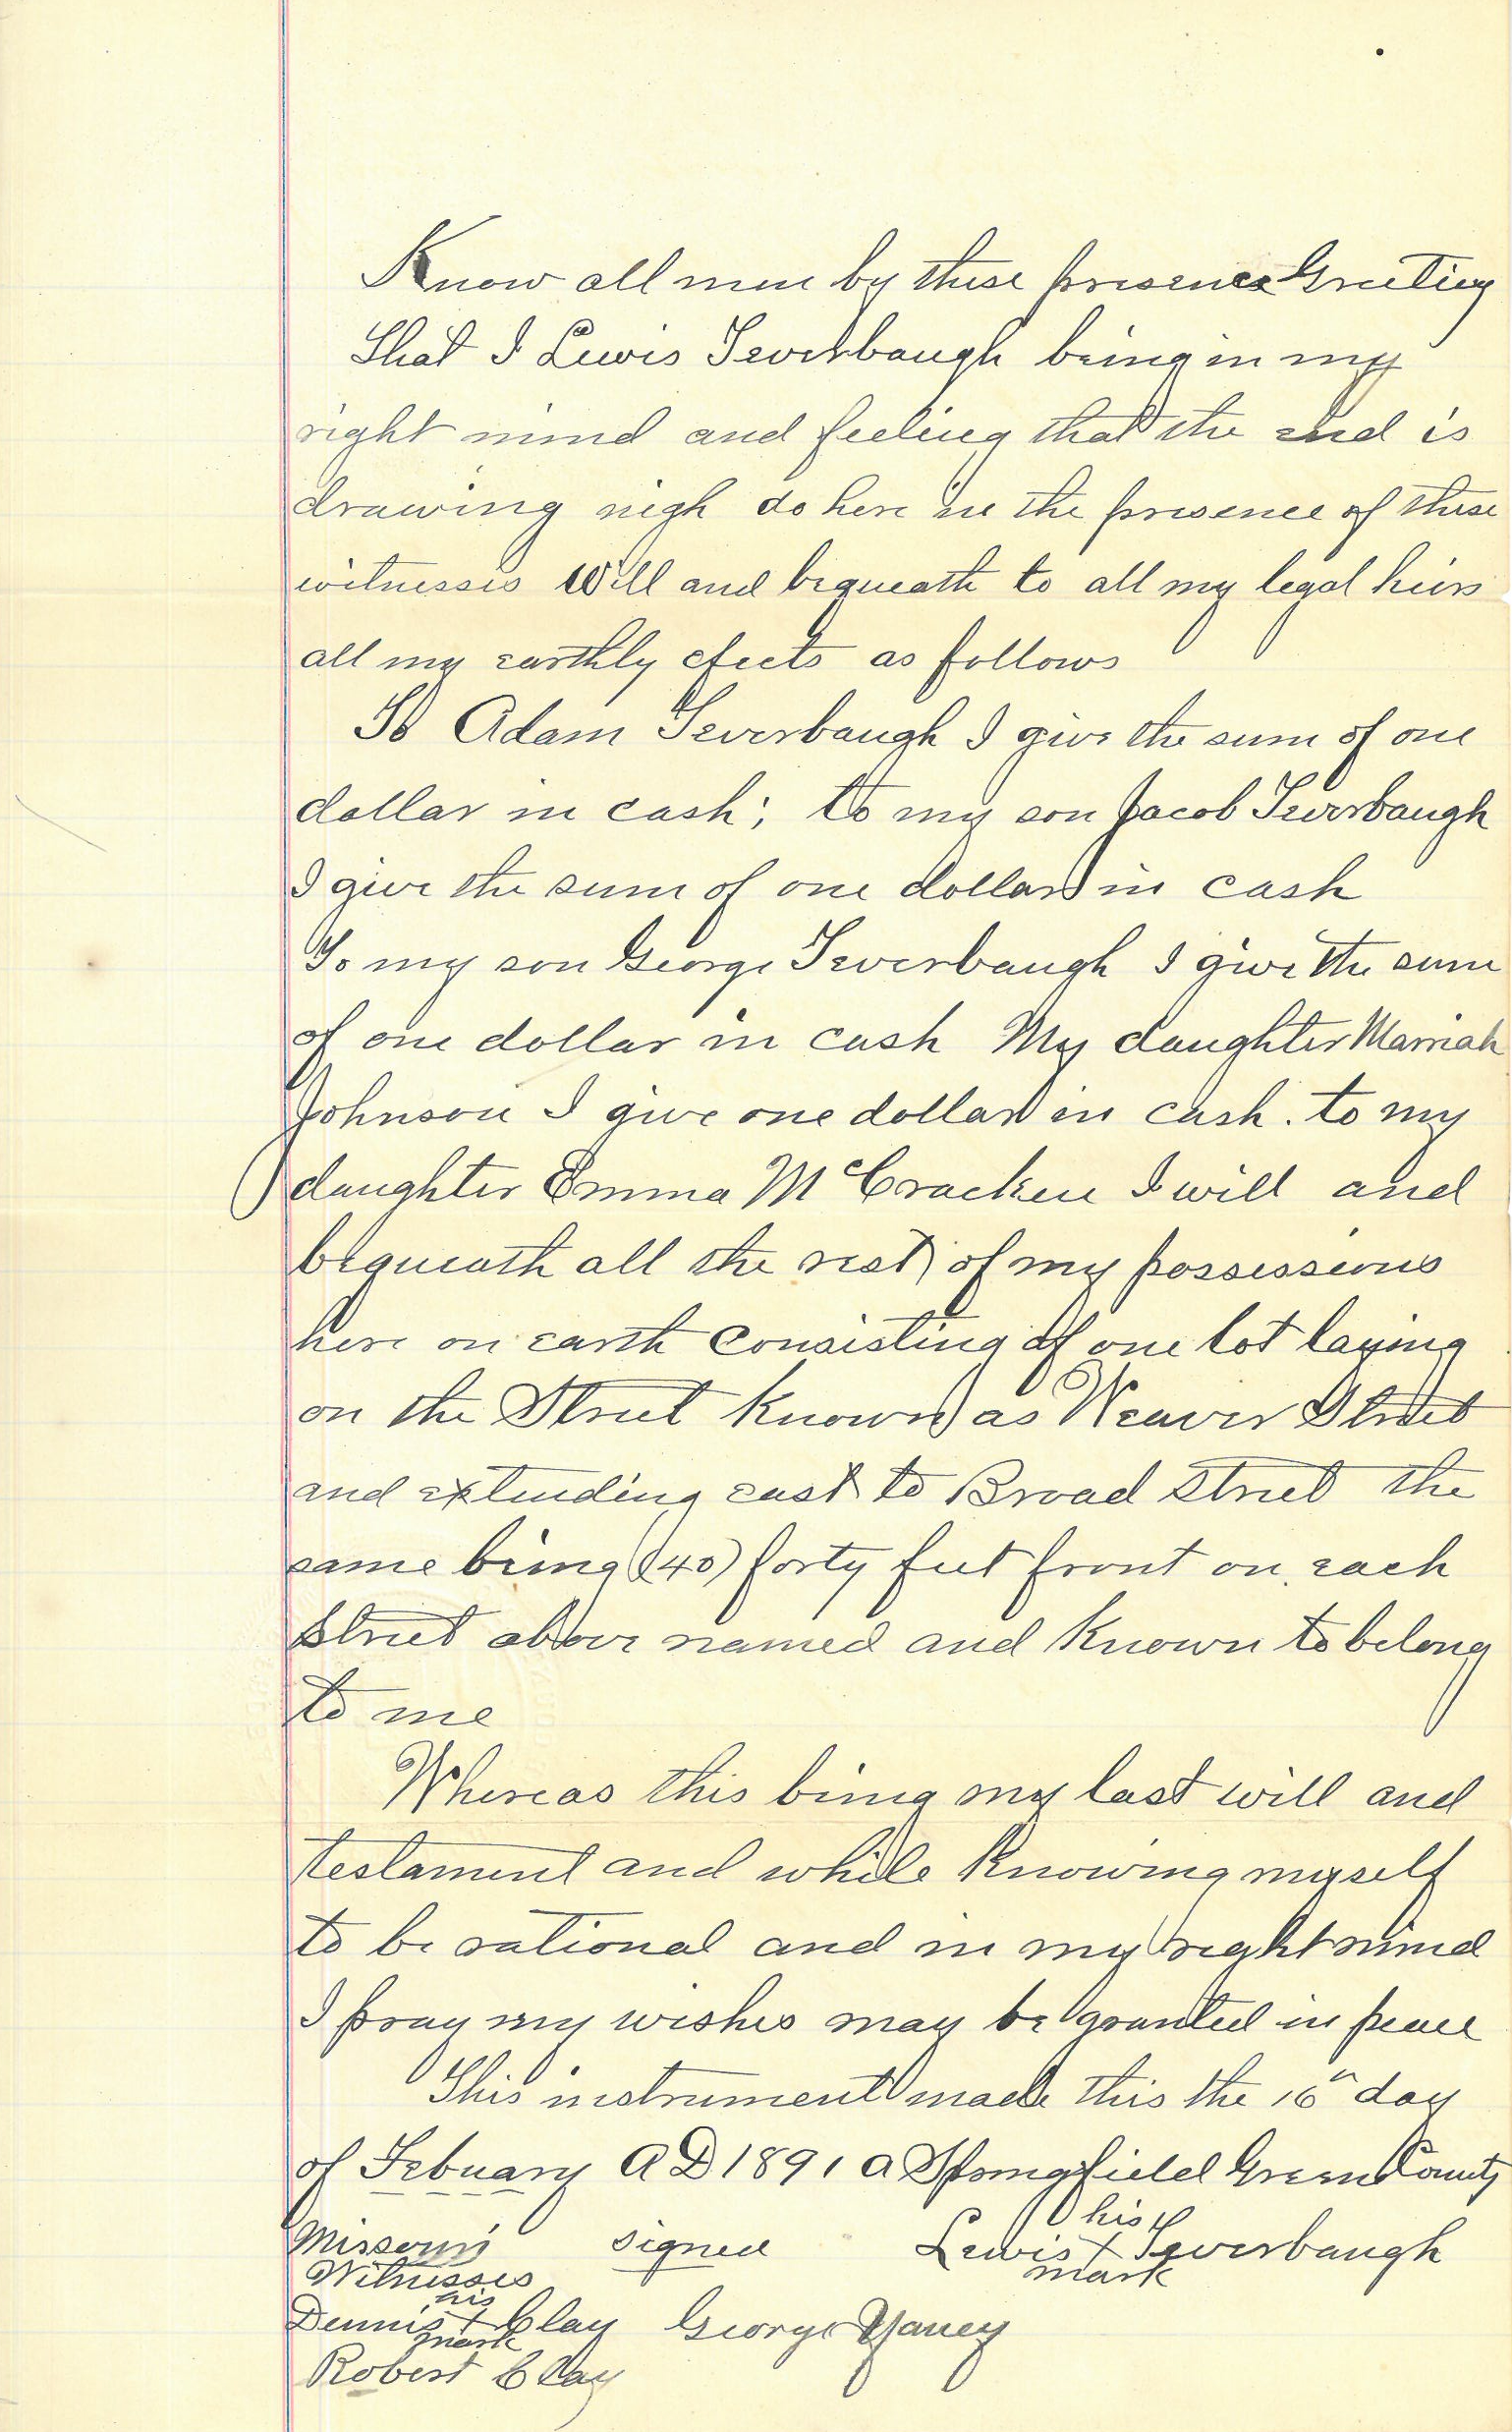 Know all men by these presence Greeting
That I Lewis Teverbaugh being in my
right mind and feeling that the end is
drawing nigh do here in the presence of these
witnesses Will and bequeath to all my legal heirs
all my earthly efects as follows
To Adam Teverbaugh I give the sum of one
dollar in cash; to my son Jacob Teverbaugh
I give the sum of one dollar in cash
To my son George Teverbaugh I give the sum
of one dollar in cash My daughter Marriah
Johnson I give one dollar in cash. to my
daughter Emma McCracken I will and
bequeath all the rest of my possessions
here on earth Consisting of one lot laying
on the Street known as Weaver Street
and extending east to Broad street the
same being (40) forty feet front on each
street above named and known to belong
to me
Whereas this being my last will and
testament and while knowing myself
to be rational and in my right mind
I pray my wishes may be granted in peace
This instrument made this the 16" day
of Febuary A D 1891 a Springfield Green County
Missouri signed Lewis his X mark Teverbaugh
Witnesses
Dennis his X mark Clay George Yancy
Robert Clay